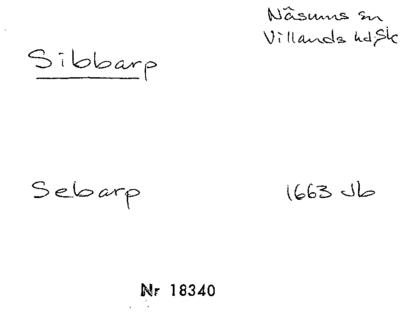 Näsums sn
Villands hd, Sk
Sibbarp
Sebarp 1663 Jb
Nr 18340